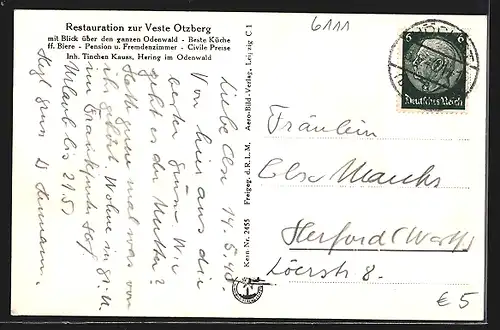 Restauration zur Veste Otzberg
mit Blick über den ganzen Odenwald - Beste Küche
ff. Biere - Pension u. Fremdenzimmer - Civile Preise
Inh. Tinchen Kauss, Hering im Odenwald
Liebe Else 14.5.40.
Von hier aus die
beste Grüße. Wie
geht es der Mutter?
Habe gar nie mal was von
ihr gehört. Wohne in
im Frankfurter Hof
Urlaub bis 21.5.
Kern Nr. 2455 Freigeg. d. R. L. M. Aero-Bild-Verlag, Leipzig C 1
6111
6 6
Deutsches Reich
Fräulein
Else Marcks
Herford (Westf)
8.
€ 5